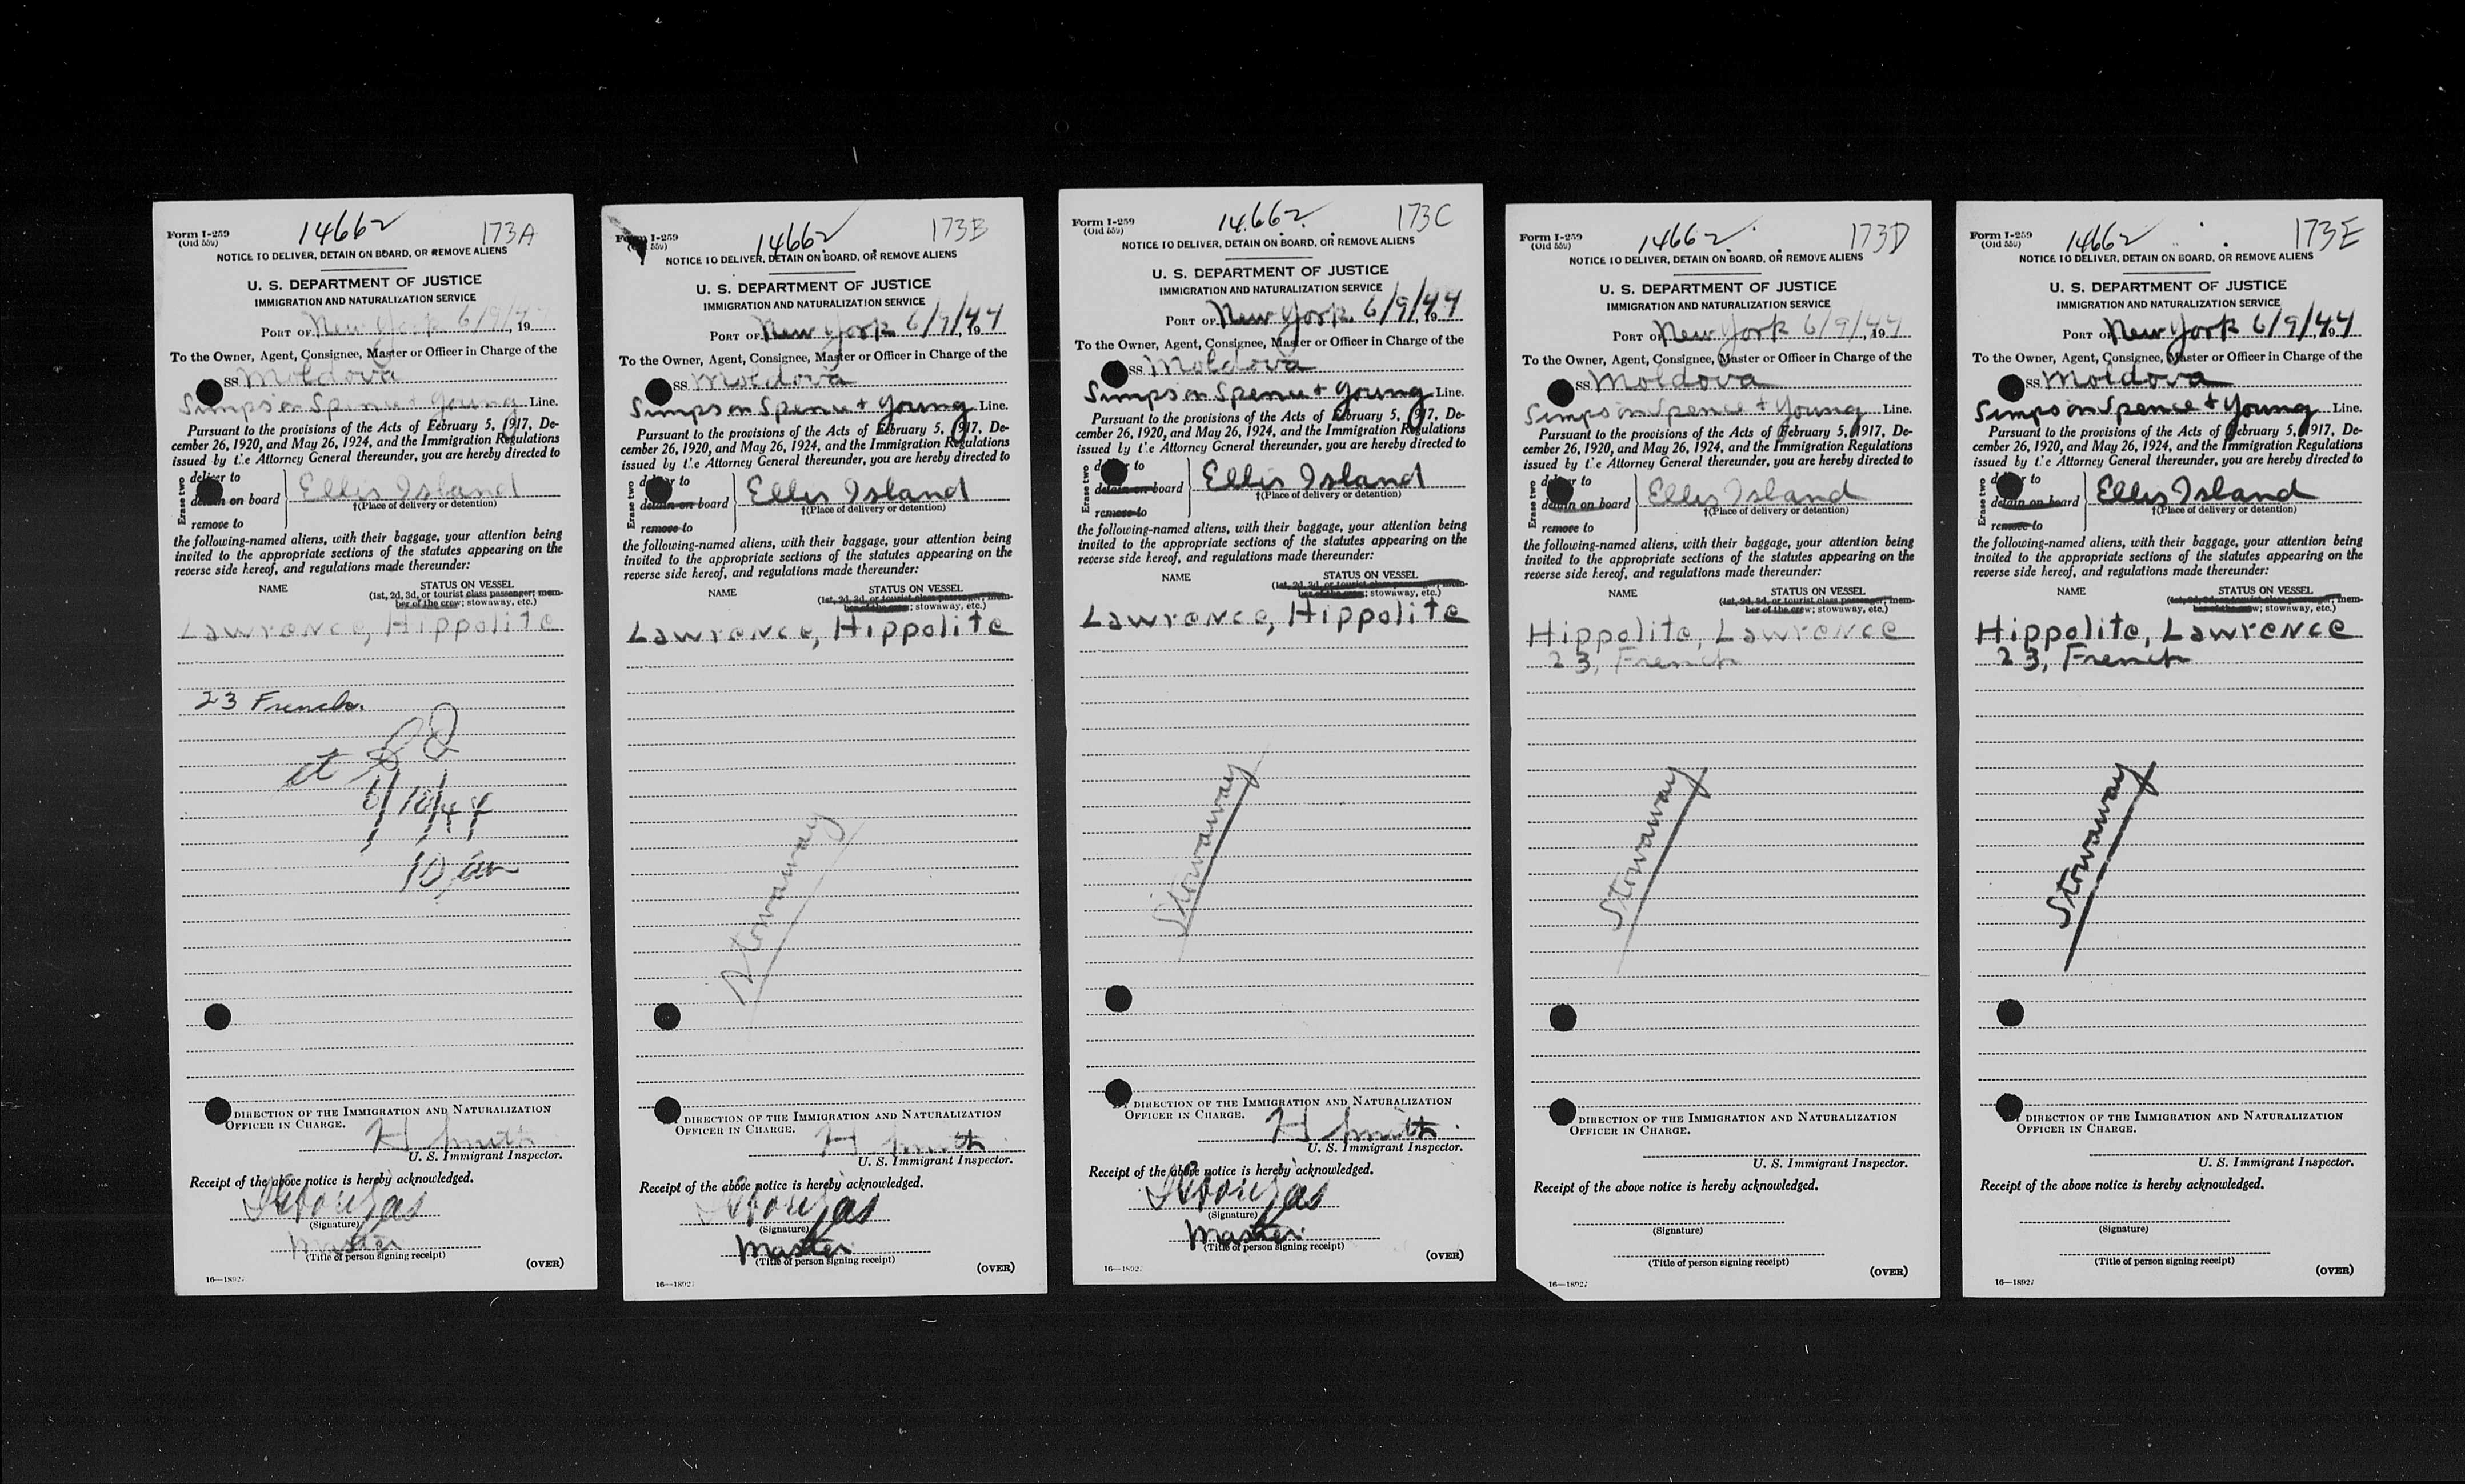 14662 173A
Form I-259
(Old 550)
NOTICE TO DELIVER, DETAIN ON BOARD, OR REMOVE ALIENS
U. S. DEPARTMENT OF JUSTICE
IMMIGRATION AND NATURALIZATION SERVICE
PORT OF New York 6/9/4, 19
To the Owner, Agent, Consignee, Master or Officer in Charge of the
SS Moldova
Simpson Spence + Young Line.
Pursuant to the provisions of the Acts of February 5, 1917, De-
cember 26, 1920, and May 26, 1924, and the Immigration Regulations
issued by the Attorney General thereunder, you are hereby directed to
Erase two
deliver to
detain on board
remove to
Ellis Island
†(Place of delivery or detention)
the following-named aliens, with their baggage, your attention being
invited to the appropriate sections of the statutes appearing on the
reverse side hereof, and regulations made thereunder:
NAME STATUS ON VESSEL
(1st, 2d, 3d, or tourist class passenger; mem-
ber of the crew; stowaway, etc.)
Lawrence, Hippolite
23 French.
at
6/10/44
10 am
DIRECTION OF THE IMMIGRATION AND NATURALIZATION
OFFICER IN CHARGE.
H Smith
U. S. Immigrant Inspector.
Receipt of the above notice is hereby acknowledged.
(Signature)
Master
(Title of person signing receipt)
(OVER)
16—18927
14662 173B
Form I-259
(Old 550)
NOTICE TO DELIVER, DETAIN ON BOARD, OR REMOVE ALIENS
U. S. DEPARTMENT OF JUSTICE
IMMIGRATION AND NATURALIZATION SERVICE
PORT OF New York 6/9/44, 19
To the Owner, Agent, Consignee, Master or Officer in Charge of the
SS Moldova
Simpson Spence + Young Line.
Pursuant to the provisions of the Acts of February 5, 1917, De-
cember 26, 1920, and May 26, 1924, and the Immigration Regulations
issued by the Attorney General thereunder, you are hereby directed to
Erase two
deliver to
detain on board
remove to
Ellis Island
†(Place of delivery or detention)
the following-named aliens, with their baggage, your attention being
invited to the appropriate sections of the statutes appearing on the
reverse side hereof, and regulations made thereunder:
NAME STATUS ON VESSEL
(1st, 2d, 3d, or tourist class passenger; mem-
ber of the crew; stowaway, etc.)
Lawrence, Hippolite
Stowaway
DIRECTION OF THE IMMIGRATION AND NATURALIZATION
OFFICER IN CHARGE.
H Smith
U. S. Immigrant Inspector.
Receipt of the above notice is hereby acknowledged.
(Signature)
Master
(Title of person signing receipt)
(OVER)
16—18927
14662 173C
Form I-259
(Old 550)
NOTICE TO DELIVER, DETAIN ON BOARD, OR REMOVE ALIENS
U. S. DEPARTMENT OF JUSTICE
IMMIGRATION AND NATURALIZATION SERVICE
PORT OF New York 6/9/44, 19
To the Owner, Agent, Consignee, Master or Officer in Charge of the
SS Moldova
Simpson Spence + Young Line.
Pursuant to the provisions of the Acts of February 5, 1917, De-
cember 26, 1920, and May 26, 1924, and the Immigration Regulations
issued by the Attorney General thereunder, you are hereby directed to
Erase two
deliver to
detain on board
remove to
Ellis Island
†(Place of delivery or detention)
the following-named aliens, with their baggage, your attention being
invited to the appropriate sections of the statutes appearing on the
reverse side hereof, and regulations made thereunder:
NAME STATUS ON VESSEL
(1st, 2d, 3d, or tourist class passenger; mem-
ber of the crew; stowaway, etc.)
Lawrence, Hippolite
Stowaway
DIRECTION OF THE IMMIGRATION AND NATURALIZATION
OFFICER IN CHARGE.
H Smith
U. S. Immigrant Inspector.
Receipt of the above notice is hereby acknowledged.
(Signature)
Master
(Title of person signing receipt)
(OVER)
16—18927
14662 173D
Form I-259
(Old 550)
NOTICE TO DELIVER, DETAIN ON BOARD, OR REMOVE ALIENS
U. S. DEPARTMENT OF JUSTICE
IMMIGRATION AND NATURALIZATION SERVICE
PORT OF New York 6/9/44, 19
To the Owner, Agent, Consignee, Master or Officer in Charge of the
SS Moldova
Simpson Spence + Young Line.
Pursuant to the provisions of the Acts of February 5, 1917, De-
cember 26, 1920, and May 26, 1924, and the Immigration Regulations
issued by the Attorney General thereunder, you are hereby directed to
Erase two
deliver to
detain on board
remove to
Ellis Island
†(Place of delivery or detention)
the following-named aliens, with their baggage, your attention being
invited to the appropriate sections of the statutes appearing on the
reverse side hereof, and regulations made thereunder:
NAME STATUS ON VESSEL
(1st, 2d, 3d, or tourist class passenger; mem-
ber of the crew; stowaway, etc.)
Hippolite, Lawrence
23, French
Stowaway
DIRECTION OF THE IMMIGRATION AND NATURALIZATION
OFFICER IN CHARGE.
U. S. Immigrant Inspector.
Receipt of the above notice is hereby acknowledged.
(Signature)
(Title of person signing receipt)
(OVER)
16—18927
14662 173E
Form I-259
(Old 550)
NOTICE TO DELIVER, DETAIN ON BOARD, OR REMOVE ALIENS
U. S. DEPARTMENT OF JUSTICE
IMMIGRATION AND NATURALIZATION SERVICE
PORT OF New York 6/9/44, 19
To the Owner, Agent, Consignee, Master or Officer in Charge of the
SS Moldova
Simpson Spence + Young Line.
Pursuant to the provisions of the Acts of February 5, 1917, De-
cember 26, 1920, and May 26, 1924, and the Immigration Regulations
issued by the Attorney General thereunder, you are hereby directed to
Erase two
deliver to
detain on board
remove to
Ellis Island
†(Place of delivery or detention)
the following-named aliens, with their baggage, your attention being
invited to the appropriate sections of the statutes appearing on the
reverse side hereof, and regulations made thereunder:
NAME STATUS ON VESSEL
(1st, 2d, 3d, or tourist class passenger; mem-
ber of the crew; stowaway, etc.)
Hippolite, Lawrence
23, French
Stowaway
DIRECTION OF THE IMMIGRATION AND NATURALIZATION
OFFICER IN CHARGE.
U. S. Immigrant Inspector.
Receipt of the above notice is hereby acknowledged.
(Signature)
(Title of person signing receipt)
(OVER)
16—18927